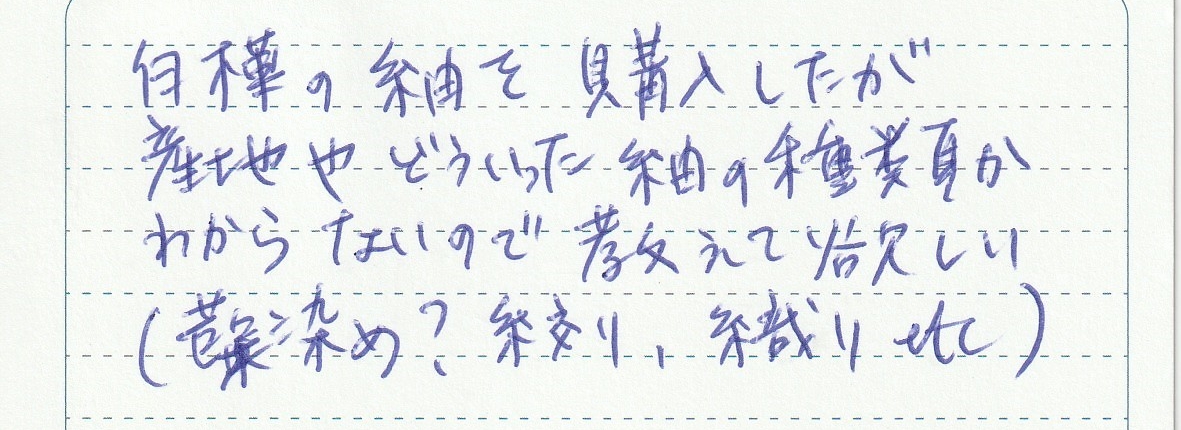 白樺の紬を購入したが
産地やどういった紬の種類か
わからないので教えて欲しい
(草染め?絞り、織りetc)